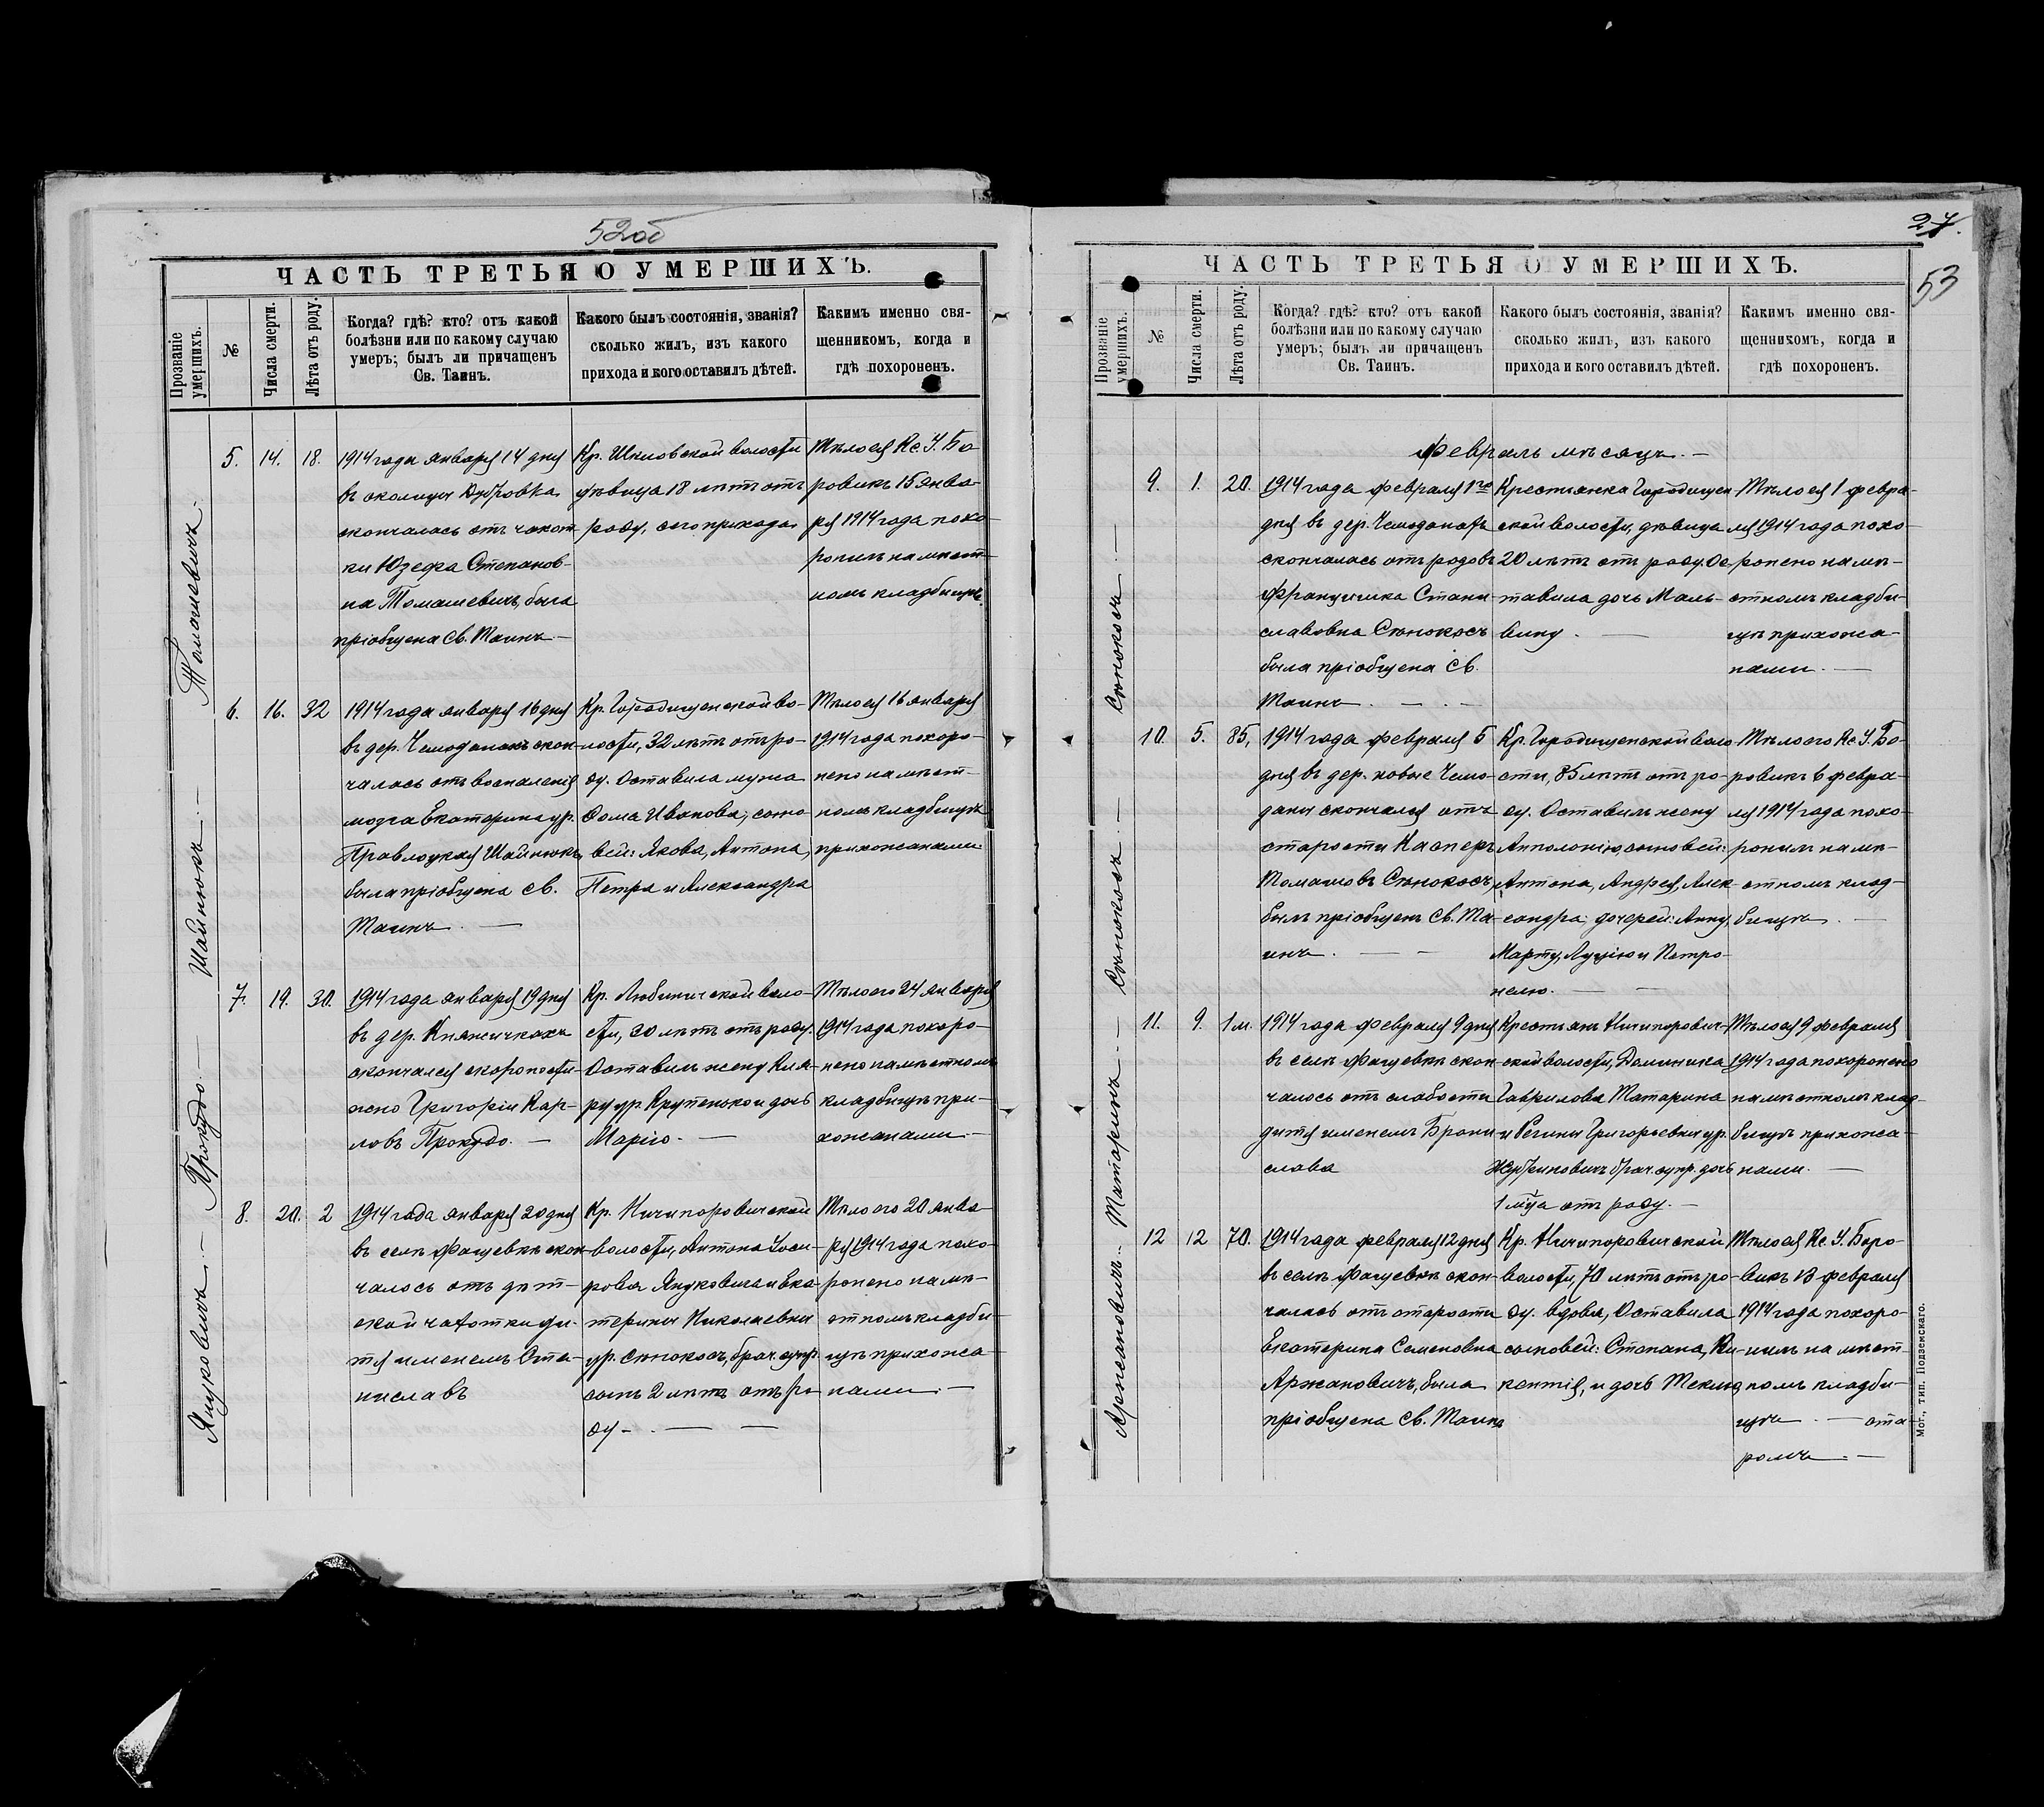 52об
ЧАСТЬ ТРЕТЬЯ О УМЕРШИХЪ.
Прозваніе умершихъ.
№
Числа смерти.
Лѣта отъ роду.
Когда? гдѣ? кто? отъ какой
болѣзни или по какому случаю
умеръ; былъ ли причащенъ
Св. Таинъ.
Какого былъ состоянія, званія?
сколько жилъ, изъ какого
прихода и кого оставилъ дѣтей.
Какимъ именно свя-
щенникомъ, когда и
гдѣ похороненъ.
Томашевичъ.
5. 14. 18.
1914 года января 14 дня
въ околицы Дубровка
скончалась отъ чахот-
ки Юзефа Степанов-
на Томашевичъ, была
пріобщена Св. Таинъ.
Кр. Шкловской волости
дѣвица 18 лѣтъ отъ
роду, сего прихода
Тѣло ея Кс. У. Бо-
ровикъ 15 янва-
ря 1914 года похо-
ронилъ на мѣст-
номъ кладбищѣ.
Шайнюкъ.
6. 16. 32
1914 года января 16 дня
въ дер. Чемоданахъ скон-
чалась отъ воспаленія
мозга Екатерина ур.
Правлоцкая Шайнюкъ,
была пріобщена Св.
Таинъ.
Кр. Городищенской во-
лости, 32 лѣтъ отъ ро-
ду. Оставила мужа
Фома Иванова, сыно-
вей: Якова, Антона,
Петра и Александра
Тѣло ея 16 января
1914 года похоро-
нено на мѣст-
номъ кладбищѣ
прихожанами
Прокудо.
7. 19. 30.
1914 года января 19 дня
въ дер. Княжичкахъ
скончался скоропости-
жно Григорій Кар-
ловъ Прокудо.
Кр. Любиничской воло-
сти, 30 лѣтъ отъ роду.
Оставилъ жену Кла-
ру ур. Крупенько и дочь
Марію.
Тѣло его 24 января
1914 года похоро-
нено на мѣстномъ
кладбищѣ при-
хожанами
Януковичъ.
8. 20. 2
1914 года января 20 дня
въ селѣ Фащевкѣ скон-
чалось отъ дѣт-
ской чахотки ди-
тя именемъ Ста-
ниславъ
Кр. Ничипоровичской
волости, Антона Іоси-
фова Януковича и Ека-
терины Николаевны
ур. Сѣнокосъ, брач. супр.
сынъ 2 лѣтъ отъ ро-
ду.
Тѣло его 20 янва-
ря 1914 года похо-
ронено на мѣ-
стномъ кладби-
щѣ прихожа-
нами
27.
53
ЧАСТЬ ТРЕТЬЯ О УМЕРШИХЪ.
Прозваніе умершихъ.
№
Числа смерти.
Лѣта отъ роду.
Когда? гдѣ? кто? отъ какой
болѣзни или по какому случаю
умеръ; былъ ли причащенъ
Св. Таинъ.
Какого былъ состоянія, званія?
сколько жилъ, изъ какого
прихода и кого оставилъ дѣтей.
Какимъ именно свя-
щенникомъ, когда и
гдѣ похороненъ.
Февраль мѣсяцъ.
Сѣнокосъ
9. 1. 20.
1914 года февраля 1го
дня въ дер. Чемоданахъ
скончалась отъ родовъ
Францишка Стани-
славовна Сѣнокосъ
была пріобщена Св.
Таинъ.
Крестьянка Городищен-
ской волости, дѣвица
20 лѣтъ отъ роду. Ос-
тавила дочь Маль-
вину.
Тѣло ея 1 февра-
ля 1914 года похо-
ронено на мѣ-
стномъ кладби-
щѣ прихожа-
нами.
Сѣнокосъ
10. 5. 85.
1914 года февраля 5
дня въ дер. новые Чемо-
даны скончался отъ
старости Касперъ
Томашовъ Сѣнокосъ,
былъ пріобщенъ Св. Та-
инъ.
Кр. Городищенской воло-
сти, 85 лѣтъ отъ ро-
ду. Оставилъ жену
Апполонію, сыновей:
Антона, Андрея, Алек-
сандра; дочерей: Анну,
Марту, Луцію и Петро-
нелю.
Тѣло его Кс. У. Бо-
ровикъ 6 февра-
ля 1914 года похо-
ронилъ на мѣ-
стномъ клад-
бищѣ.
Татаринъ
11. 9. 1м.
1914 года февраля 9 дня
въ селѣ Фащевкѣ скон-
чалось отъ слабости
дитя именемъ Брони-
слава
Крестьянъ Ничипорович-
ской волости, Доминика
Гаврилова Татарина
и Регины Григорьевны ур.
брач. супр. дочь
1 м-ца отъ роду.
Тѣло ея 9 февраля
1914 года похоронено
на мѣстномъ клад-
бищѣ прихожа-
нами.
Аржановичъ
12 12 70.
1914 года февраля 12 дня
въ селѣ Фащевкѣ скон-
чалась отъ старости
Екатерина Семеновна
Аржановичъ, была
пріобщена Св. Таинъ
Кр. Ничипоровичской
волости, 70 лѣтъ отъ ро-
ду. вдова, Оставила
сыновей: Степана, Ви-
кентія, и дочь Теклю
Тѣло ея Кс. У. Боро-
викъ 13 февраля
1914 года похоро-
нилъ на мѣст-
номъ кладби-
щѣ ста-
ромъ
Мог., тип. Подземскаго.